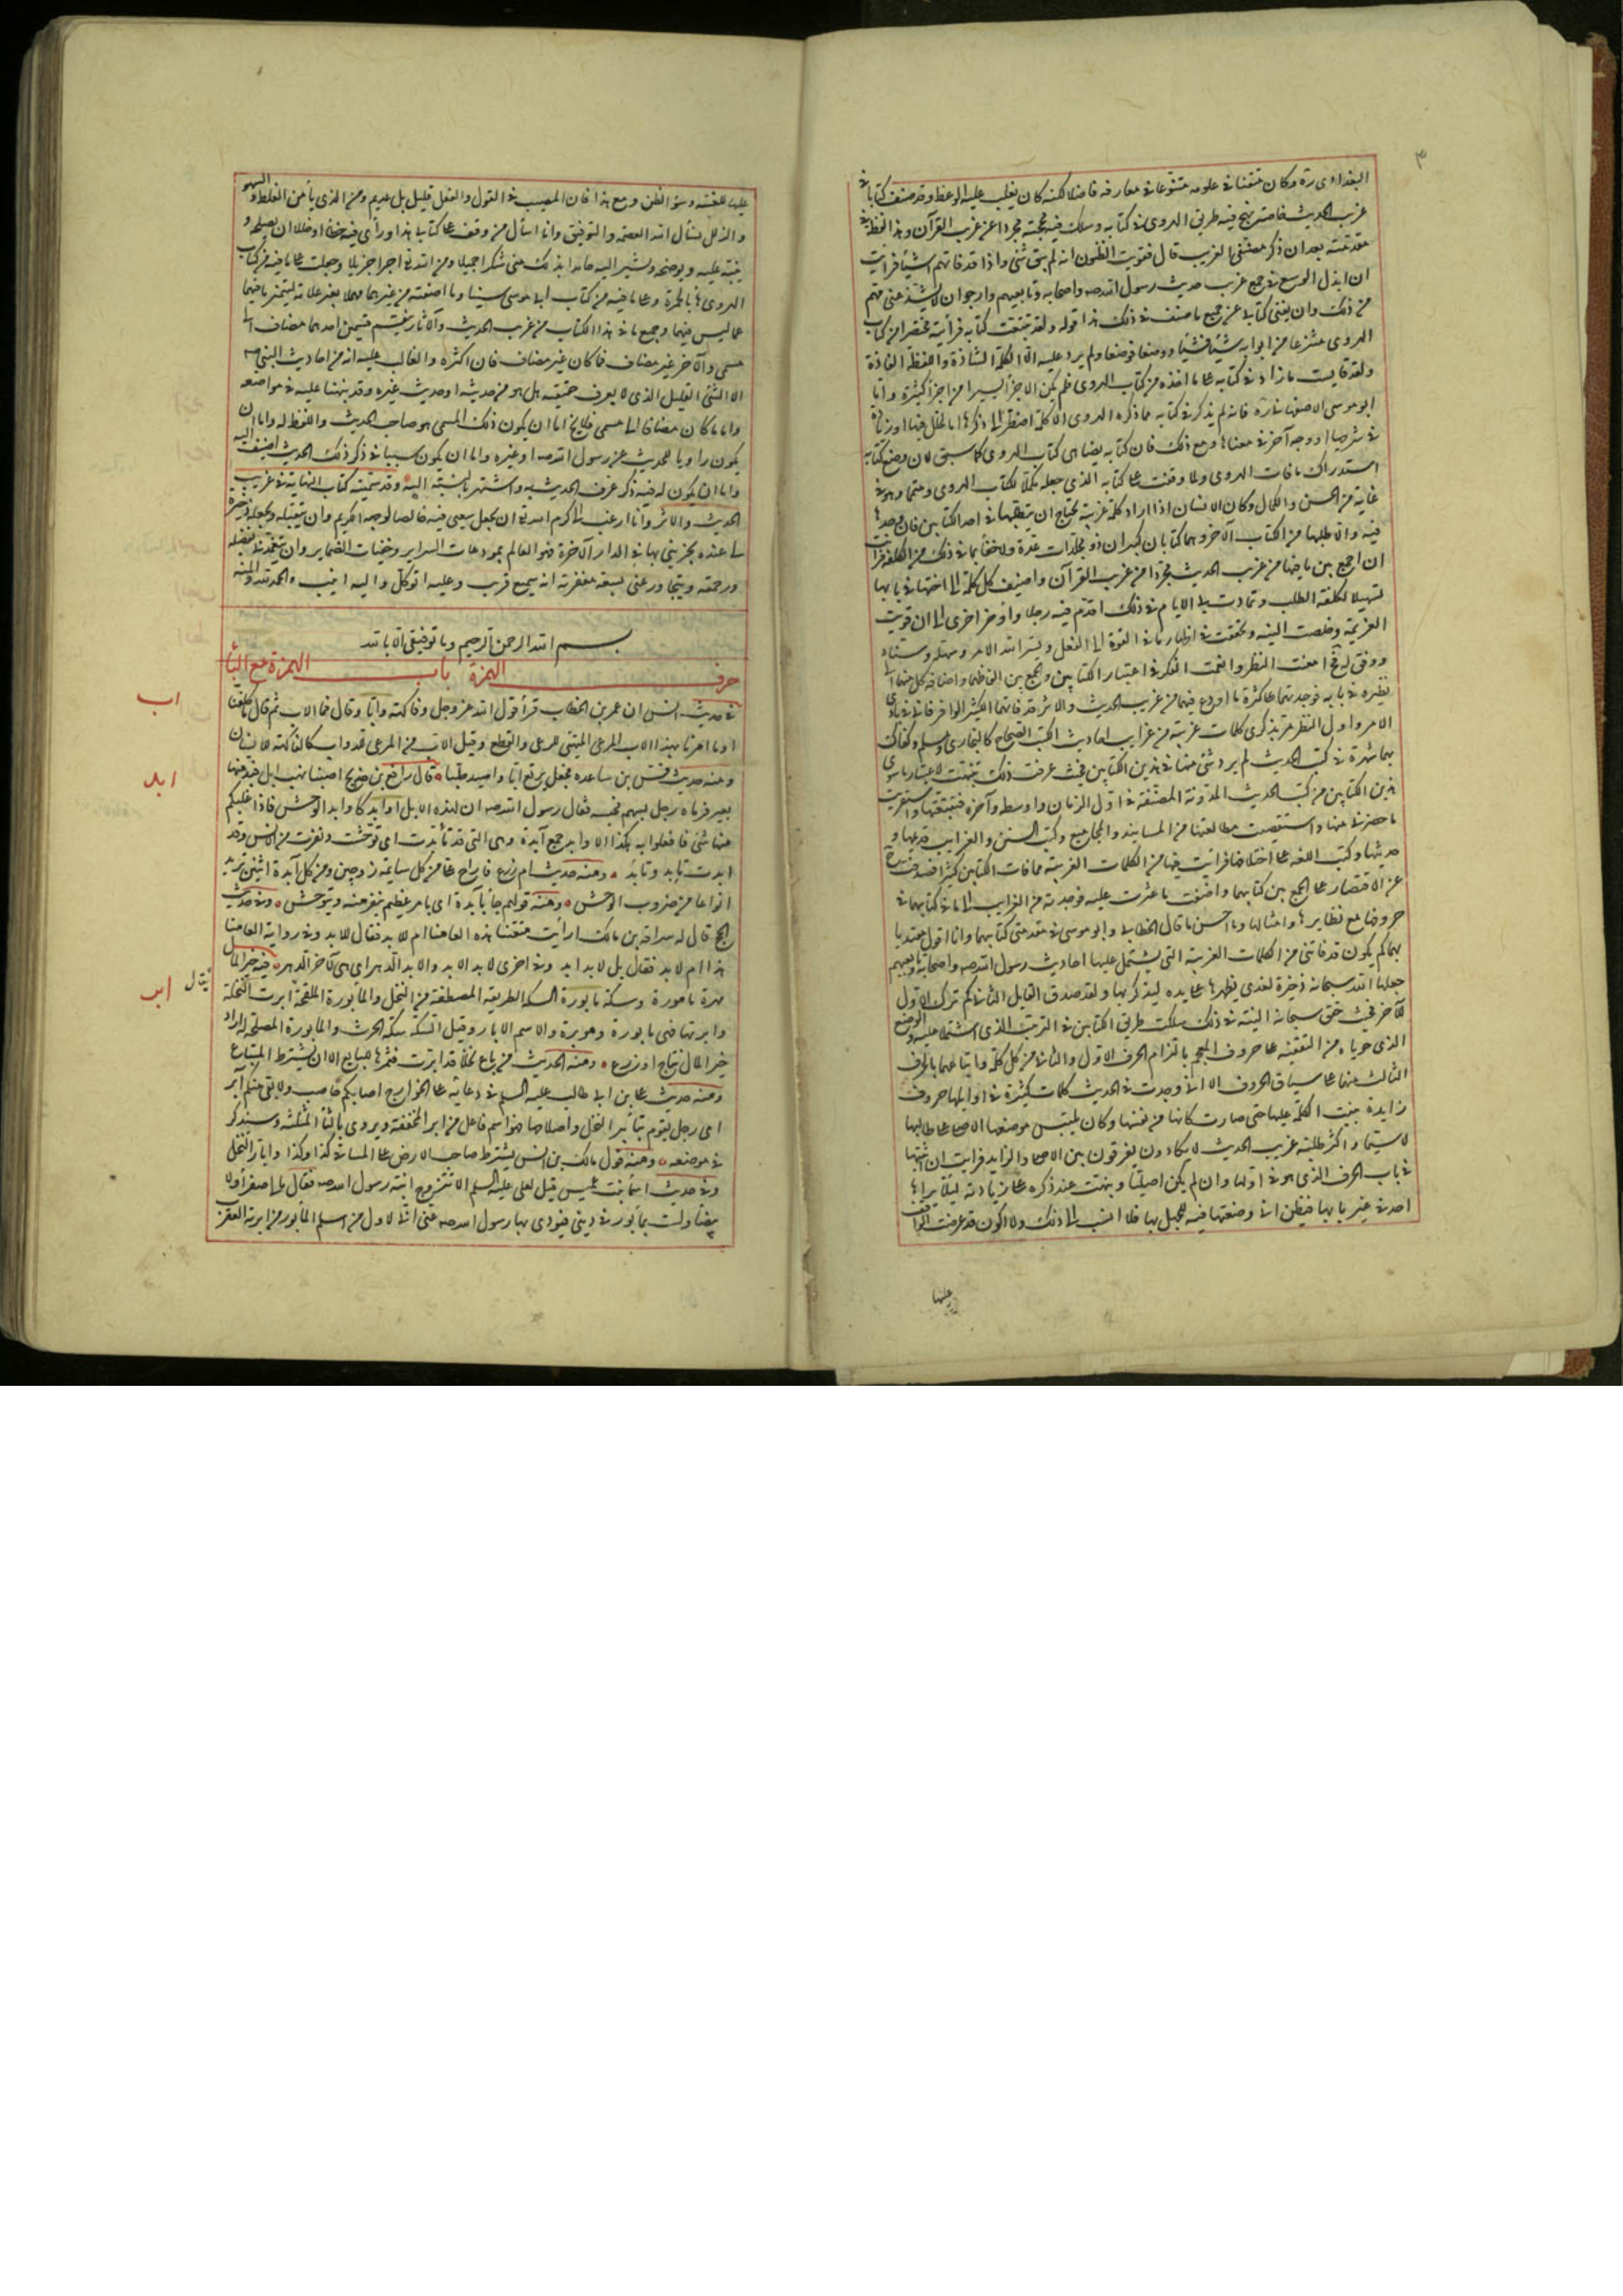 ٣
البغدادى ره وكان متفننا فى علومه متنوعا فى معارفه فاضلا لكنه كان يغلب عليه الوعظ وقد صنف كتابا فى
غريب الحديث خاصة نهج فيه طريق الهروى فى كتابه وسلك فيه محجته مجردا عن غريب القرآن وهذا لفظه فى
مقدمته بعد ان ذكر مصنفى الغريب قال فقويت الظنون انه لم يبق شئ واذا قد فاتهم اشيأ فرأيت
ان ابذل الوسع فى جمع غريب حديث رسول الله صه واصحابه وتابعيهم وارجو ان لا يشذ عنى مهم
من ذلك وان يغنى كتابى عن جميع ما صنف فى ذلك هذا قوله ولقد تتبعت كتابه فرأيته مختصرا من كتاب
الهروى منتزعا من ابوابه شيئا فشيئا ووضعا فوضعا ولم يزد عليه الا الكلمة الشاذة واللفظة الفاذة
ولقد قايست ما زاد فى كتابه على ما اخذه من كتاب الهروى فلم يكن الا جزأ يسيرا من اجزأ كثيرة واما
ابو موسى الاصفهانى ره فانه لم يذكر فى كتابه مما ذكره الهروى الا كلمة اضطر الى ذكرها اما لخلل فيها او زيادة
فى شرحها او وجه آخر فى معناها ومع ذلك فان كتابه يضاهى كتاب الهروى كما سبق لان وضع كتابه
استدراك ما فات الهروى ولما وقفت على كتابه الذى جعله مكملا لكتاب الهروى ومتمما وهو فى
غاية من الحسن والكمال وكان الانسان اذا اراد كلمة غريبة يحتاج ان يتطلبها فى احد الكتابين فان وجدها
فيه والا طلبها من الكتاب الآخر وهما كتابان كبيران ذو مجلدات عدة ولا خفأ بما فى ذلك من الكلفة فرأيت
ان اجمع بين ما فيهما من غريب الحديث مجردا من غريب القرآن واضيف كل كلمة الى اختها فى بابها
تسهيلا لكلفة الطلب وتمادت بى الايام فى ذلك اقدم فيه رجلا واؤخر اخرى الى ان قويت
العزيمة وخلصت النية وتحققت فى اظهار ما فى القوة الى الفعل ويسر الله الامر وسهله وسناه
ووفق اليه فح امعنت النظر وانعمت الفكر فى اعتبار الكتابين والجمع بين الفاظهما واضافة كل منهما الى
نظيره فى بابه فوجدتهما على كثرة ما اودع فيهما من غريب الحديث والاثر قد فاتهما الكثير الوافر فانى فى بادى
الامر واول النظر مر بذكرى كلمات غريبة من غرايب احاديث الكتب الصحاح كالبخارى ومسلم وكفاك
بهما شهرة فى كتب الحديث لم يرد شئ منها فى هذين الكتابين فحيث عرفت ذلك تنبهت لاعتبار ما سوى
هذين الكتابين من كتب الحديث المدونة المصنفة فى اول الزمان واوسطه وآخره فتتبعتها واستقريت
ما حضرنى منها واستقصيت مطالعتها من المسانيد والمجاميع وكتب السنن والغرايب قديمها و
حديثها وكتب اللغة على اختلافها فرأيت فيها من الكلمات الغريبة مما فات الكتابين كثيرا فصدفت حينئذ
عن الاقتصار على الجمع بين كتابيهما واضفت ما عثرت عليه ووجدته من الغرايب الى ما فى كتابيهما فى
حروفها مع نظايرها وامثالها وما احسن ما قال الخطابى وابو موسى فى مقدمتى كتابيهما وانا اقول مقتديا
بهما كم يكون قد فاتنى من الكلمات الغريبة التى يشتمل عليها احاديث رسول الله صه واصحابه وتابعيهم
جعلها الله سبحانه ذخيرة لغيرى يظهرها على يده ليذكر بها ولقد صدق القايل الثانى كم ترك الاول
للآخر فحيث حقق سبحانه النية فى ذلك سلكت طريق الكتابين فى الترتيب الذى اشتملا عليه والوضع
الذى حوياه من التقفية على حروف المعجم بالتزام الحرف الاول والثانى من كل كلمة واتباعهما بالحرف
الثالث منهما على سياق الحروف الا انى وجدت فى الحديث كلمات كثيرة فى اوايلها حروف
زايدة بنيت الكلمة عليها حتى صارت كانها من نفسها وكان يلتبس موضعها الاصلى على طالبها
لا سيما واكثر طلبة غريب الحديث لا يكادون يفرقون بين الاصلى والزايد فرأيت ان اثبتها
فى باب الحرف الذى هو فى اولها وان لم يكن اصليا ونبهت عند ذكره على زيادته ليلا يراها
احد فى غير بابها فيظن انى وضعتها فيه للجهل بها فلا انسب الى ذلك ولا اكون قد عرضت الواقف
عليها
عليها للغيبة وسؤ الظن ومع هذا فان المصيب فى القول والفعل قليل بل عديم ومن الذى يأمن الغلط والسهو
والزلل نسأل الله العصمة والتوفيق وانا اسأل من وقف على كتابى هذا ورأى فيه خطأ او خللا ان يصلحه و
ينبه عليه ويوضحه ويشير اليه حايزا بذلك منى شكرا جميلا ومن الله تعالى اجرا جزيلا وجعلت على ما فيه من كتاب
الهروى ها بالحمرة وعلى ما فيه من كتاب ابى موسى سينا وما اضفته من غيرهما مهملا بغير علامة ليتميز ما فيهما
عما ليس فيهما وجميع ما فى هذا الكتاب من غريب الحديث والآثار ينقسم قسمين احدهما مضاف الى
مسمى والآخر غير مضاف فما كان غير مضاف فان اكثره والغالب عليه انه من احاديث النبى صه
الا الشئ القليل الذى لا يعرف حقيقته هل هو من حديثه او حديث غيره وقد نبهنا عليه فى مواضعه
واما ما كان مضافا الى مسمى فلا يخ اما ان يكون ذلك المسمى هو صاحب الحديث واللفظ له واما ان
يكون راويا للحديث عن رسول الله صه او غيره واما ان يكون سببا فى ذكر ذلك الحديث اضيف اليه
واما ان يكون له فيه ذكر عرف الحديث به واشتهر بالنسبة اليه وقد سميته كتاب النهاية فى غريب
الحديث والاثر وانا ارغب الى كرم الله تعالى ان يجعل سعيى فيه خالصا لوجهه الكريم وان يتقبله ويجعله ذخيرة
لى عنده يجزينى بها فى الدار الآخرة فهو العالم بمودعات السراير وخفيات الضماير وان يتغمدنى بفضله
ورحمته ويتجاوز عنى بسعة مغفرته انه سميع قريب وعليه اتوكل واليه انيب والحمد لله والمنه
بسم الله الرحمن الرحيم وما توفيقى الا بالله
حرف الهمزة باب الهمزة مع البأ
اب
فى حديث انس ان عمر بن الخطاب قرأ قول الله عز وجل وفاكهة وابا وقال فما الاب ثم قال ما كلفنا
او ما امرنا بهذا الاب المرعى المتهيى للرعى والقطع وقيل الاب من المرعى للدواب كالفاكهة للانسان
ومنه حديث قس بن ساعده فجعل يرتع ابا واصيد ضبا قال رافع بن خديج اصبنا نهب ابل فند منها
ابد
بعير فرماه رجل بسهم فحبسه فقال رسول الله صه ان لهذه الابل اوابد كاوابد الوحش فاذا غلبكم
منها شئ فافعلوا به هكذا الاوابد جمع آبدة وهى التى قد تأبدت اى توحشت ونفرت من الانس وقد
ابدت تأبد وتأبد ومنه حديث ام زرع فاراح على من كل سايمة زوجين ومن كل آبدة اثنين تريد
انواعا من ضروب الوحش ومنه قولهم جأ بآبدة اى بامر عظيم ينفر منه ويتوحش وفى حديث
الحج قال له سراقة بن مالك ارأيت متعتنا هذه العامنا ام للابد فقال للابد وفى رواية العامنا
هذا ام لابد فقال بل لابد ابد وفى اخرى لابد الابد والابد الدهر اى هى لآخر الدهر فيه خير المال
ابر
يقال
مهرة مامورة وسكة مابورة السكة الطريقة المصطفة من النخل والمابورة الملقحة ابرت النخلة
وابرتها فهى مابورة ومؤبرة والاسم الابار وقيل السكة سكة الحرث والمابورة المصلحة له اراد
خير المال نتاج او زرع ومنه الحديث من باع نخلا قد ابرت فثمرها للبايع الا ان يشترط المبتاع
ومنه حديث على بن ابى طالب عليه السلم فى دعائه على الخوارج اصابكم حاصب ولا بقى منكم آبر
اى رجل يقوم بتأبير النخل واصلاحها فهو اسم فاعل من ابر المخففة ويروى بالثأ المثلثة وسيذكر
فى موضعه ومنه قول مالك بن انس يشترط صاحب الارض على المساقى كذا وكذا وابار النخل
وفى حديث اسمأ بنت عميس قيل لعلى عليه السلم الا تتزوج ابنة رسول الله صه فقال مالى صفرأ ولا
بيضأ ولست بمأبور فى دينى فيورى بها رسول الله صه عنى انى لاول من اسلم المأبور من ابرته العقرب